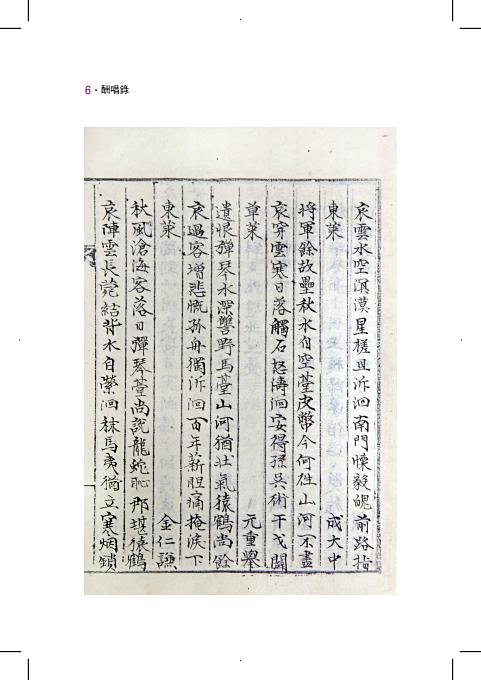 6 · 酬唱錄
哀雲水空溟漠星槎且泝洄南門懷毅魄前路指
東萊 成大中
將軍餘故壘秋水自空臺皮幣今何往山河不盡
哀穿雲寒日落觸石怒濤洄安得孫吳術干戈闢
草萊 元重擧
遺恨彈琴水深讐野馬臺山河猶壯氣猿鶴尚餘
哀過客增悲慨孤舟獨泝洄百年薪胆痛掩淚下
東萊 金仁謙
秋風滄海客落日彈琴臺尚說龍蛇恥那堪猿鶴
哀陣雲長結背水自縈洄秣馬夷猶立寒烟鎖